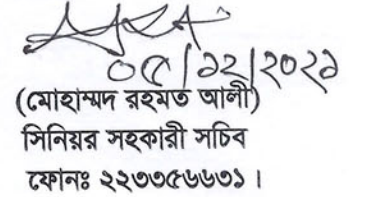 ০৫/১২/২০২১
(মোহাম্মদ রহমত আলী)
সিনিয়র সহকারী সচিব
ফোনঃ ২২৩৩৫৬৬৩১ ।